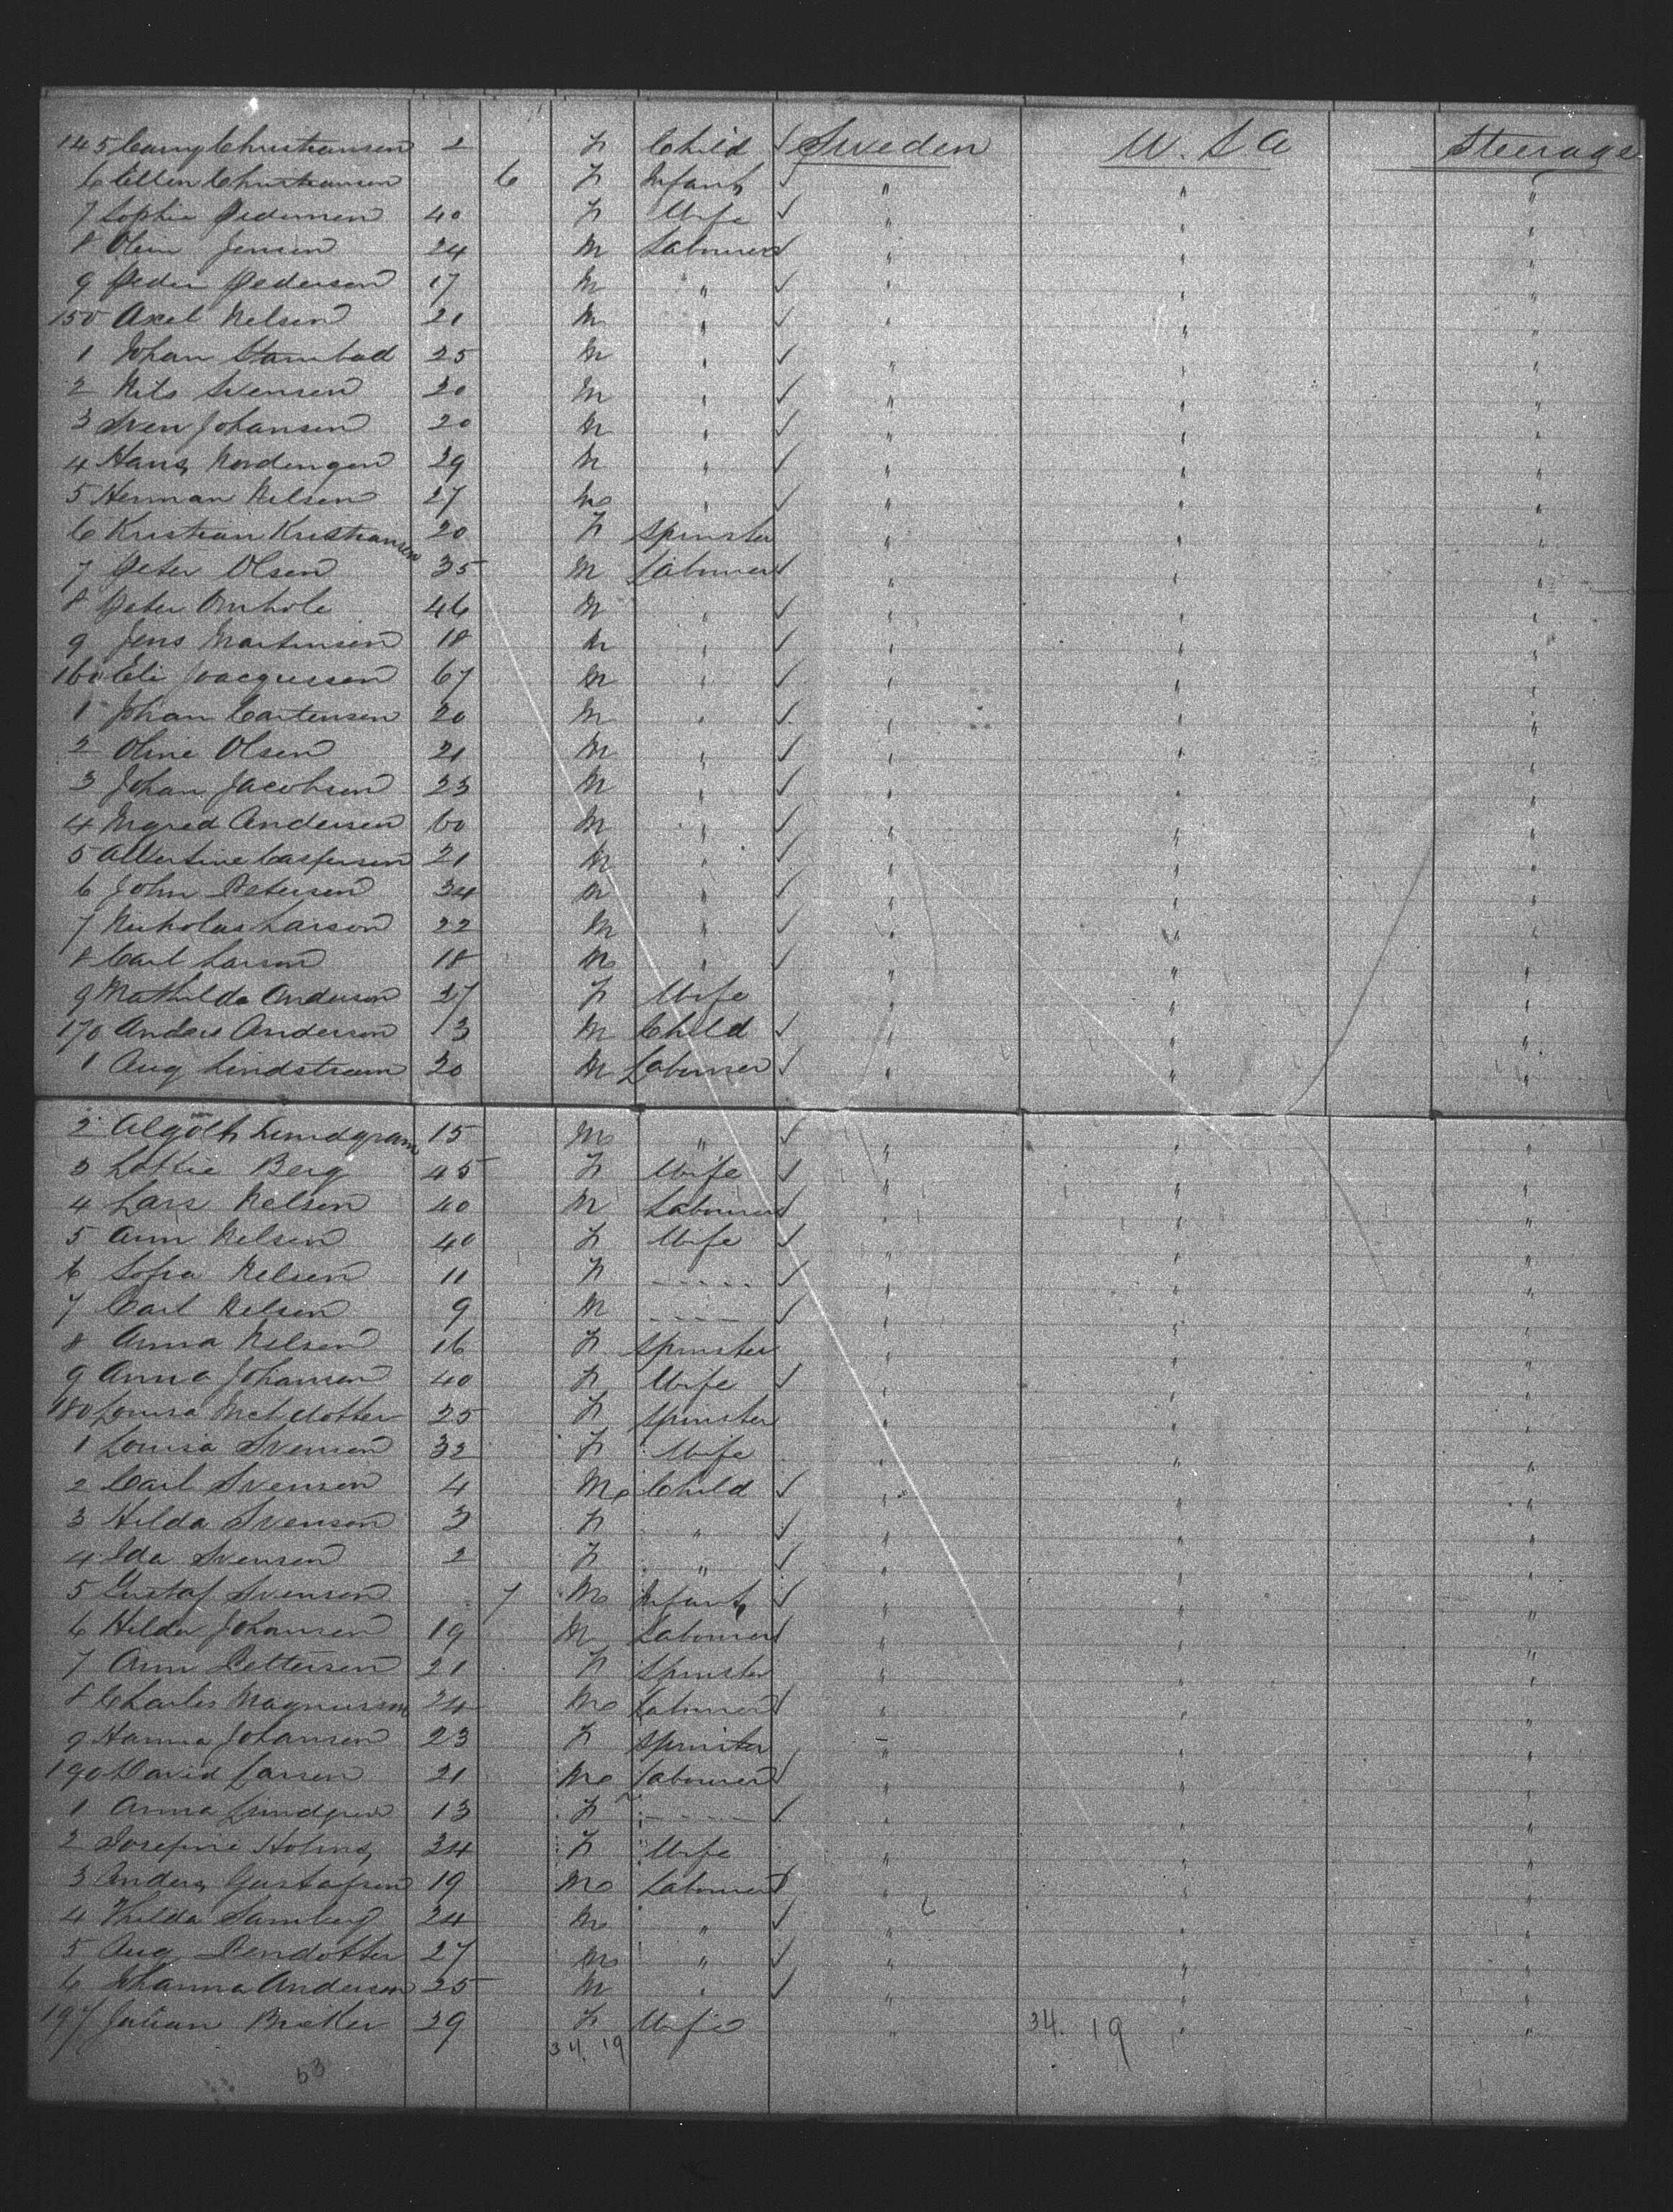 145 Carry Christiansen 2 F Child ✓ Sweden U.S.A Steerage
6 Ellen Christiansen 6 F Infant ✓ " " "
7 Sophie Pedersen 40 F Wife ✓ " " "
8 Olein Jensen 24 M Labourer ✓ " " "
9 Peder Pedersen 17 M " ✓ " " "
150 Axel Nelsen 21 M " ✓ " " "
1 Johan Stambad 25 M " ✓ " " "
2 Nils Svensen 20 M " ✓ " " "
3 Sven Johansen 20 M " ✓ " " "
4 Hans Nordengen 29 M " ✓ " " "
5 Herman Nelsen 27 M " ✓ " " "
6 Kristian Kristiansen 20 F Spinster " " "
7 Peter Olsen 35 M Labourer ✓ " " "
8 Peter Amhole 46 M " ✓ " " "
9 Jens Martinsen 18 M " ✓ " " "
160 Eli Joacqussen 67 M " ✓ " " "
1 Johan Cartensen 20 M " ✓ " " "
2 Oline Olsen 21 M " ✓ " " "
3 Johan Jacobsen 23 M " ✓ " " "
4 Ingred Andersen 60 M " ✓ " " "
5 Albertine Caspersen 21 M " ✓ " " "
6 John Petersen 34 M " ✓ " " "
7 Nicholas Larson 22 M " ✓ " " "
8 Carl Larson 18 M " ✓ " " "
9 Mathilda Anderson 27 F Wife " " "
170 Anders Anderson 13 M Child ✓ " " "
1 Aug Lindstraum 20 M Labourer ✓ " " "
2 Algoth Lundgram 15 M " ✓ " " "
3 Lottie Berg 45 F Wife ✓ " " "
4 Lars Nelsen 40 M Labourer ✓ " " "
5 Ann Nelsen 40 F Wife ✓ " " "
6 Sofia Nelsen 11 F - - - - - ✓ " " "
7 Carl Nelsen 9 M - - - - - ✓ " " "
8 Anna Nelsen 16 F Spinster " " "
9 Anna Johansen 40 F Wife ✓ " " "
180 Louisa 25 F Spinster " " "
1 Louisa Svensen 32 F Wife " " "
2 Carl Svensen 4 M Child ✓ " " "
3 Hilda Svensen 3 F " ✓ " " "
4 Ida Svensen 2 F " ✓ " " "
5 Gustaf Svensen 7 M Infant ✓ " " "
6 Hilda Johansen 19 M Labourer ✓ " " "
7 Ann Pettersen 21 F Spinster " " "
8 Charles Magnusson 24 M Labourer ✓ " " "
9 Hanna Johansen 23 F Spinster " " "
190 David Larsen 21 M Labourer ✓ " " "
1 Anna Lundgren 13 F - - - - - ✓ " " "
2 Josefine Holms 34 F Wife " " "
3 Anders Gustafsen 19 M Labourer ✓ " " "
4 Hilda Samberg 24 M " ✓ " " "
5 Aug Pendotter 27 M " ✓ " " "
6 Johanna Anderson 25 M " ✓ " " "
197 Julian 29 F Wife " " "
34. 19 34. 19
53